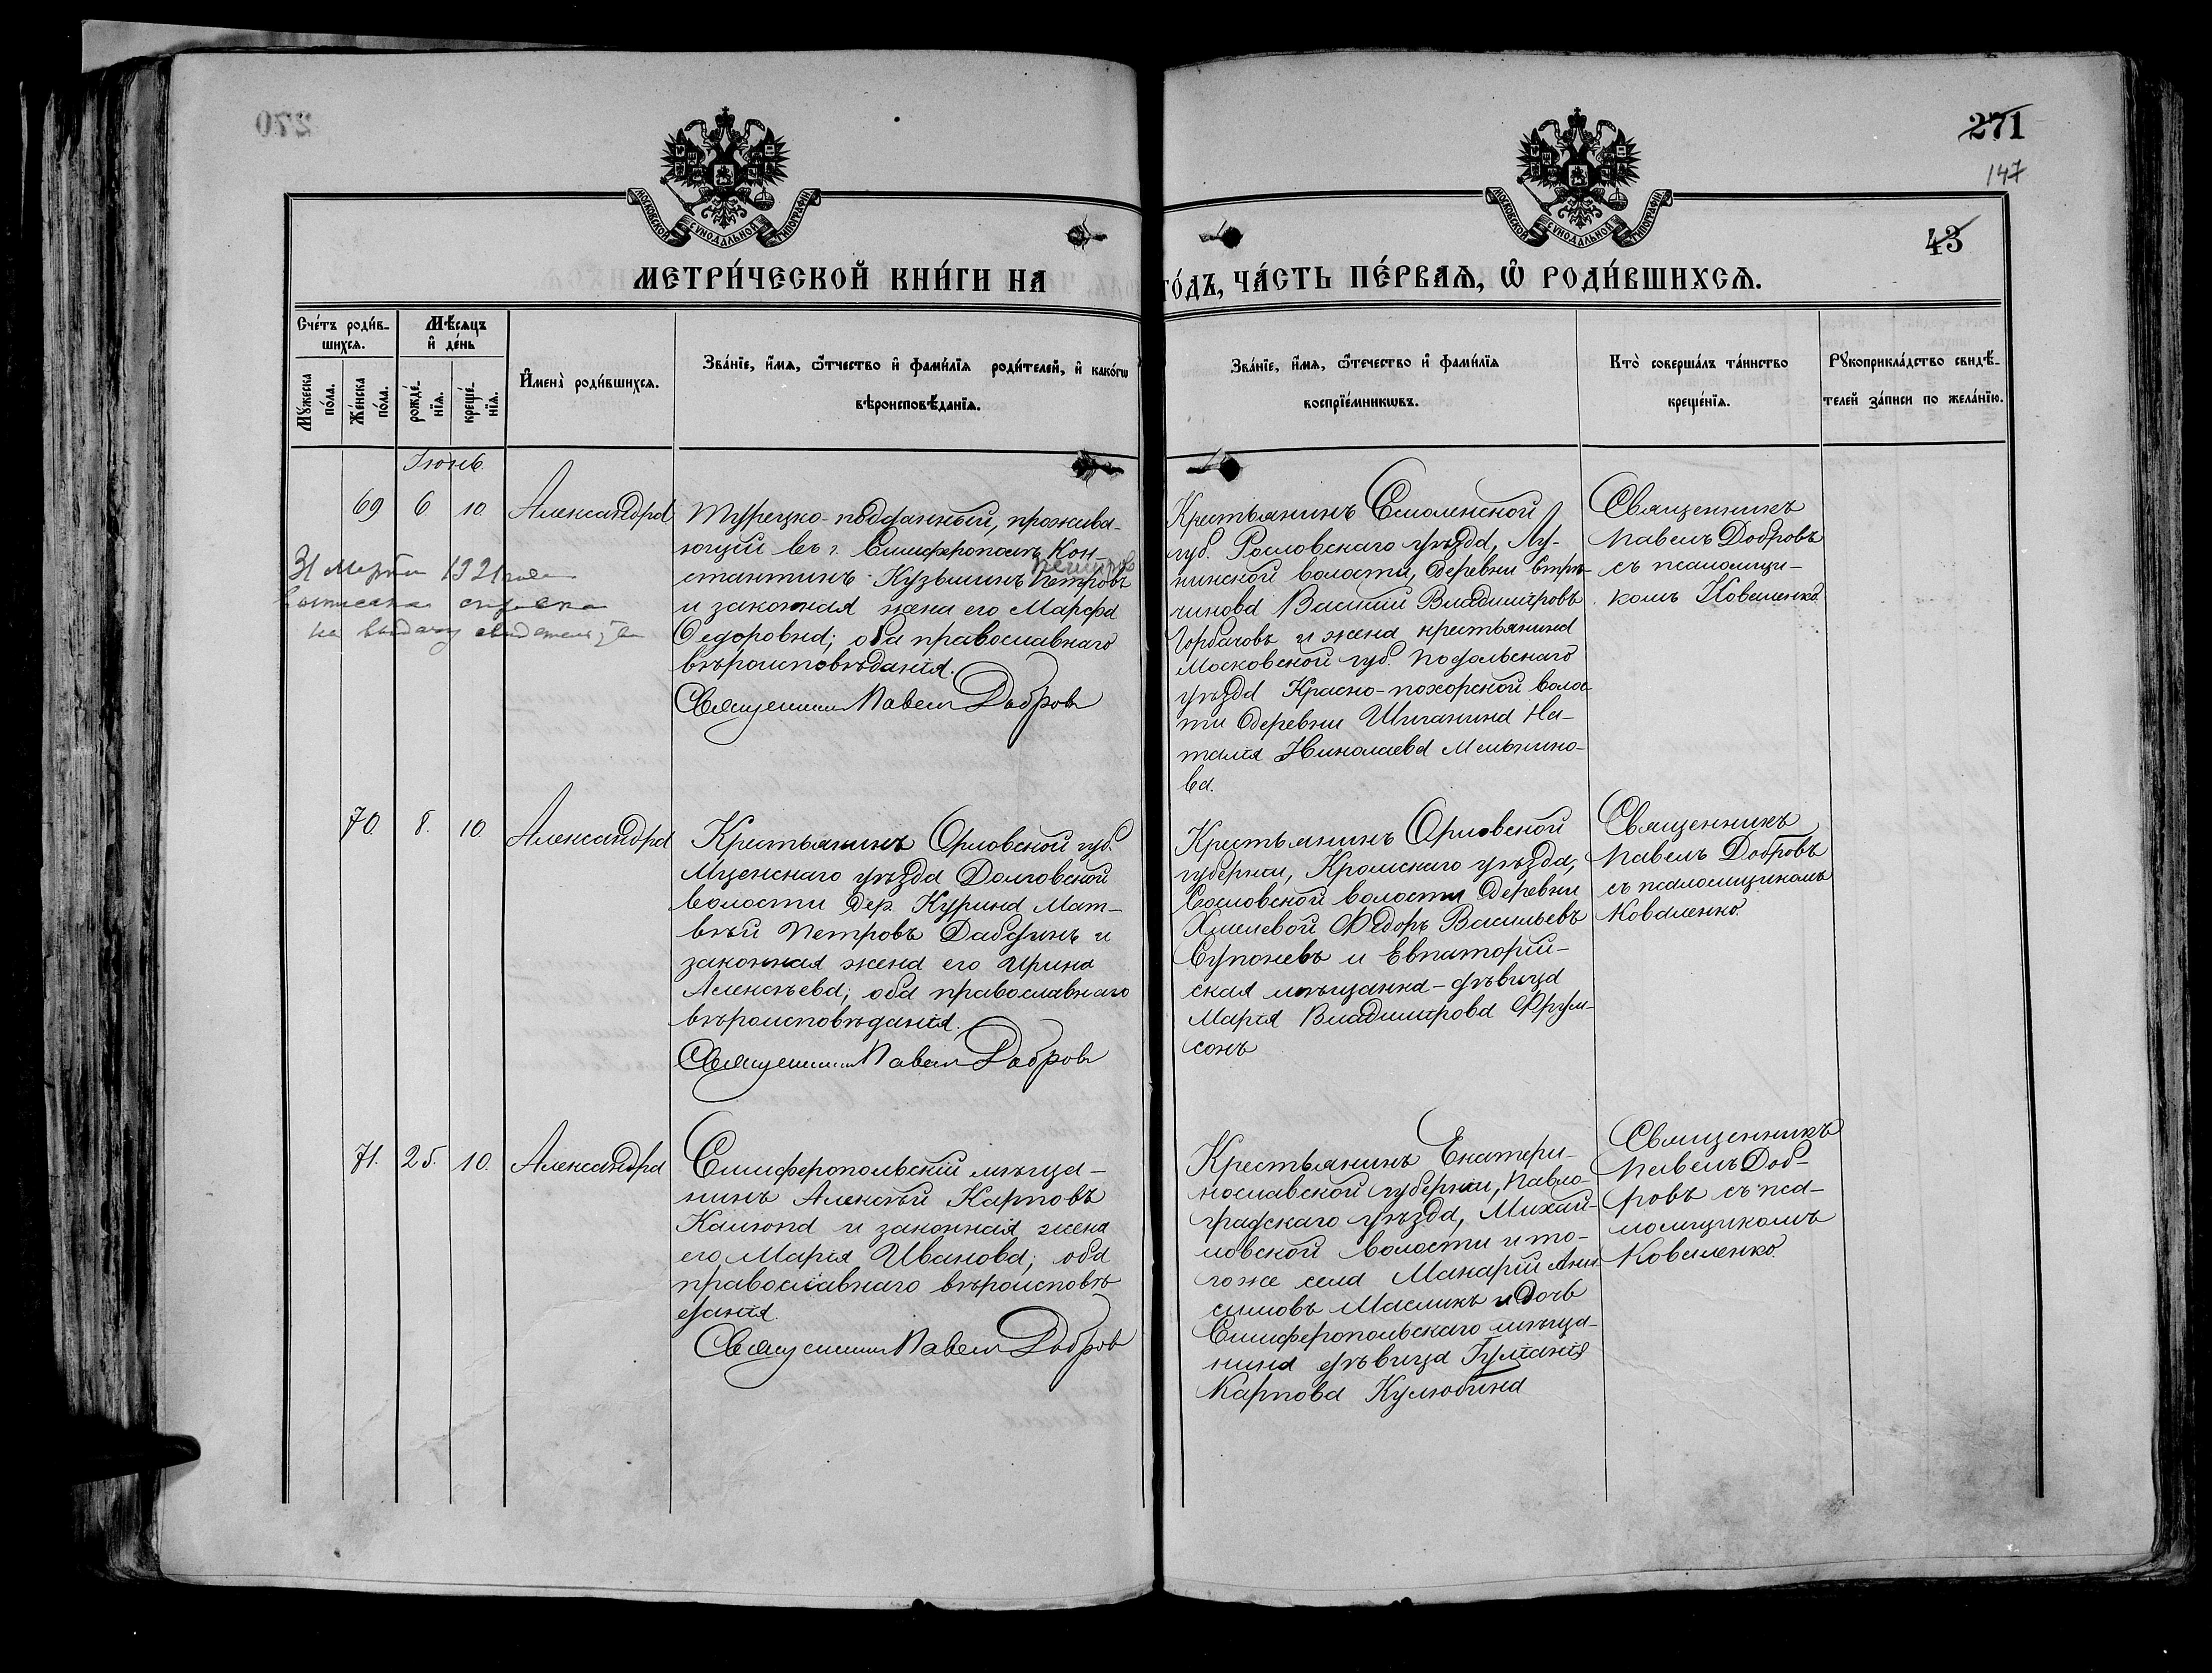 270
271
147
43
МОСКОВСКОЙ СѴНОДАЛЬНОЙ ТИПОГРАФІИ
МОСКОВСКОЙ СѴНОДАЛЬНОЙ ТИПОГРАФІИ
МЕТРИ́ЧЕСКОЙ КНИ́ГИ НА
ГО́ДЪ, ЧА́СТЬ ПЕ́РВАѦ, Ѡ҆ РОДИ́ВШИХСѦ.
Сче́тъ роди́в-
шихсѧ.
Мꙋ́жеска
по́ла.
Же́нска
по́ла.
Мѣ́сѧцъ
и҆ де́нь
рожде́-
нїѧ.
креще́-
нїѧ.
И҆мена̀ роди́вшихсѧ.
Зва́нїе, и҆́мѧ, ѻ҆́тчество и҆ фами́лїѧ роди́телей, и҆ како́гѡ
вѣроисповѣ́данїѧ.
Зва́нїе, и҆́мѧ, ѻ҆те́чество и҆ фами́лїѧ
воспрїе́мникѡвъ.
Кто̀ соверша́лъ та́инство
креще́нїѧ.
Рꙋкоприкла́дство свидѣ́-
телей за́писи по жела́нїю.
Іюнь.
69 6 10. Александра
Турецко-подданный, прожива-
ющій въ г. Симферополѣ Кон-
стантинъ Кузьминъ Петровъ
и законная жена его Марѳа
Ѳедоровна; оба православнаго
вѣроисповѣданія.
Священникъ Павелъ Добровъ
31 Марта 1921 года
выписана справка
на выдачу
Крестьянинъ Смоленской
губ. Рославскаго уѣзда, Лу-
нинской волости, деревни
Василій Владиміровъ
Горбачовъ и жена крестьянина
Московской губ. Подольскаго
уѣзда Красно-пахорской волос
ти деревни Шиганина На-
талія Николаева Мельнико-
ва.
Священникъ
Павелъ Добровъ
съ псаломщи-
комъ Коваленко.
70. 8. 10. Александра
Крестьянинъ Орловской губ.
Мценскаго уѣзда Долговской
волости дер. Курина Мат-
вѣй Петровъ и
законная жена его Ирина
Алексѣева; оба православнаго
вѣроисповѣданія.
Священникъ Павелъ Добровъ
Крестьянинъ Орловской
губерніи, Кромскаго уѣзда,
волости деревни
Хмелевой Ѳедоръ Васильевъ
Супоневъ и Евпаторій-
ская мѣщанка-дѣвица
Марія Владимірова
сонъ
Священникъ
Павелъ Добровъ
съ псаломщикомъ
Коваленко.
71. 25. 10. Александра
Симферопольскій мѣща-
нинъ Алексѣй Карповъ
и законная жена
его Марія Иванова; оба
православнаго вѣроисповѣ
данія.
Священникъ Павелъ Добровъ
Крестьянинъ Екатери-
нославской губерніи, Павло-
градскаго уѣзда, Михай-
ловской волости и то-
гоже села Макарій Ани
симовъ Масликъ и дочь
Симферопольскаго мѣща-
нина дѣвица Іуліанія
Карпова
Священникъ
Павелъ Доб-
ровъ съ пса-
ломщикомъ
Коваленко.